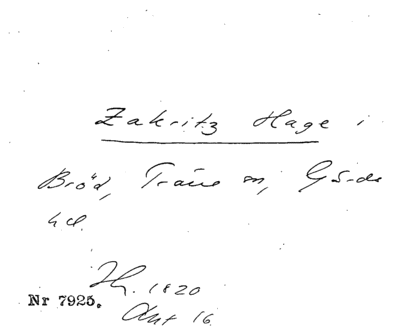 Zakritz Hage i
Bröd, Träne sn, Gärds
hd.
Hg. 1820
Nr 7925.
Akt 16